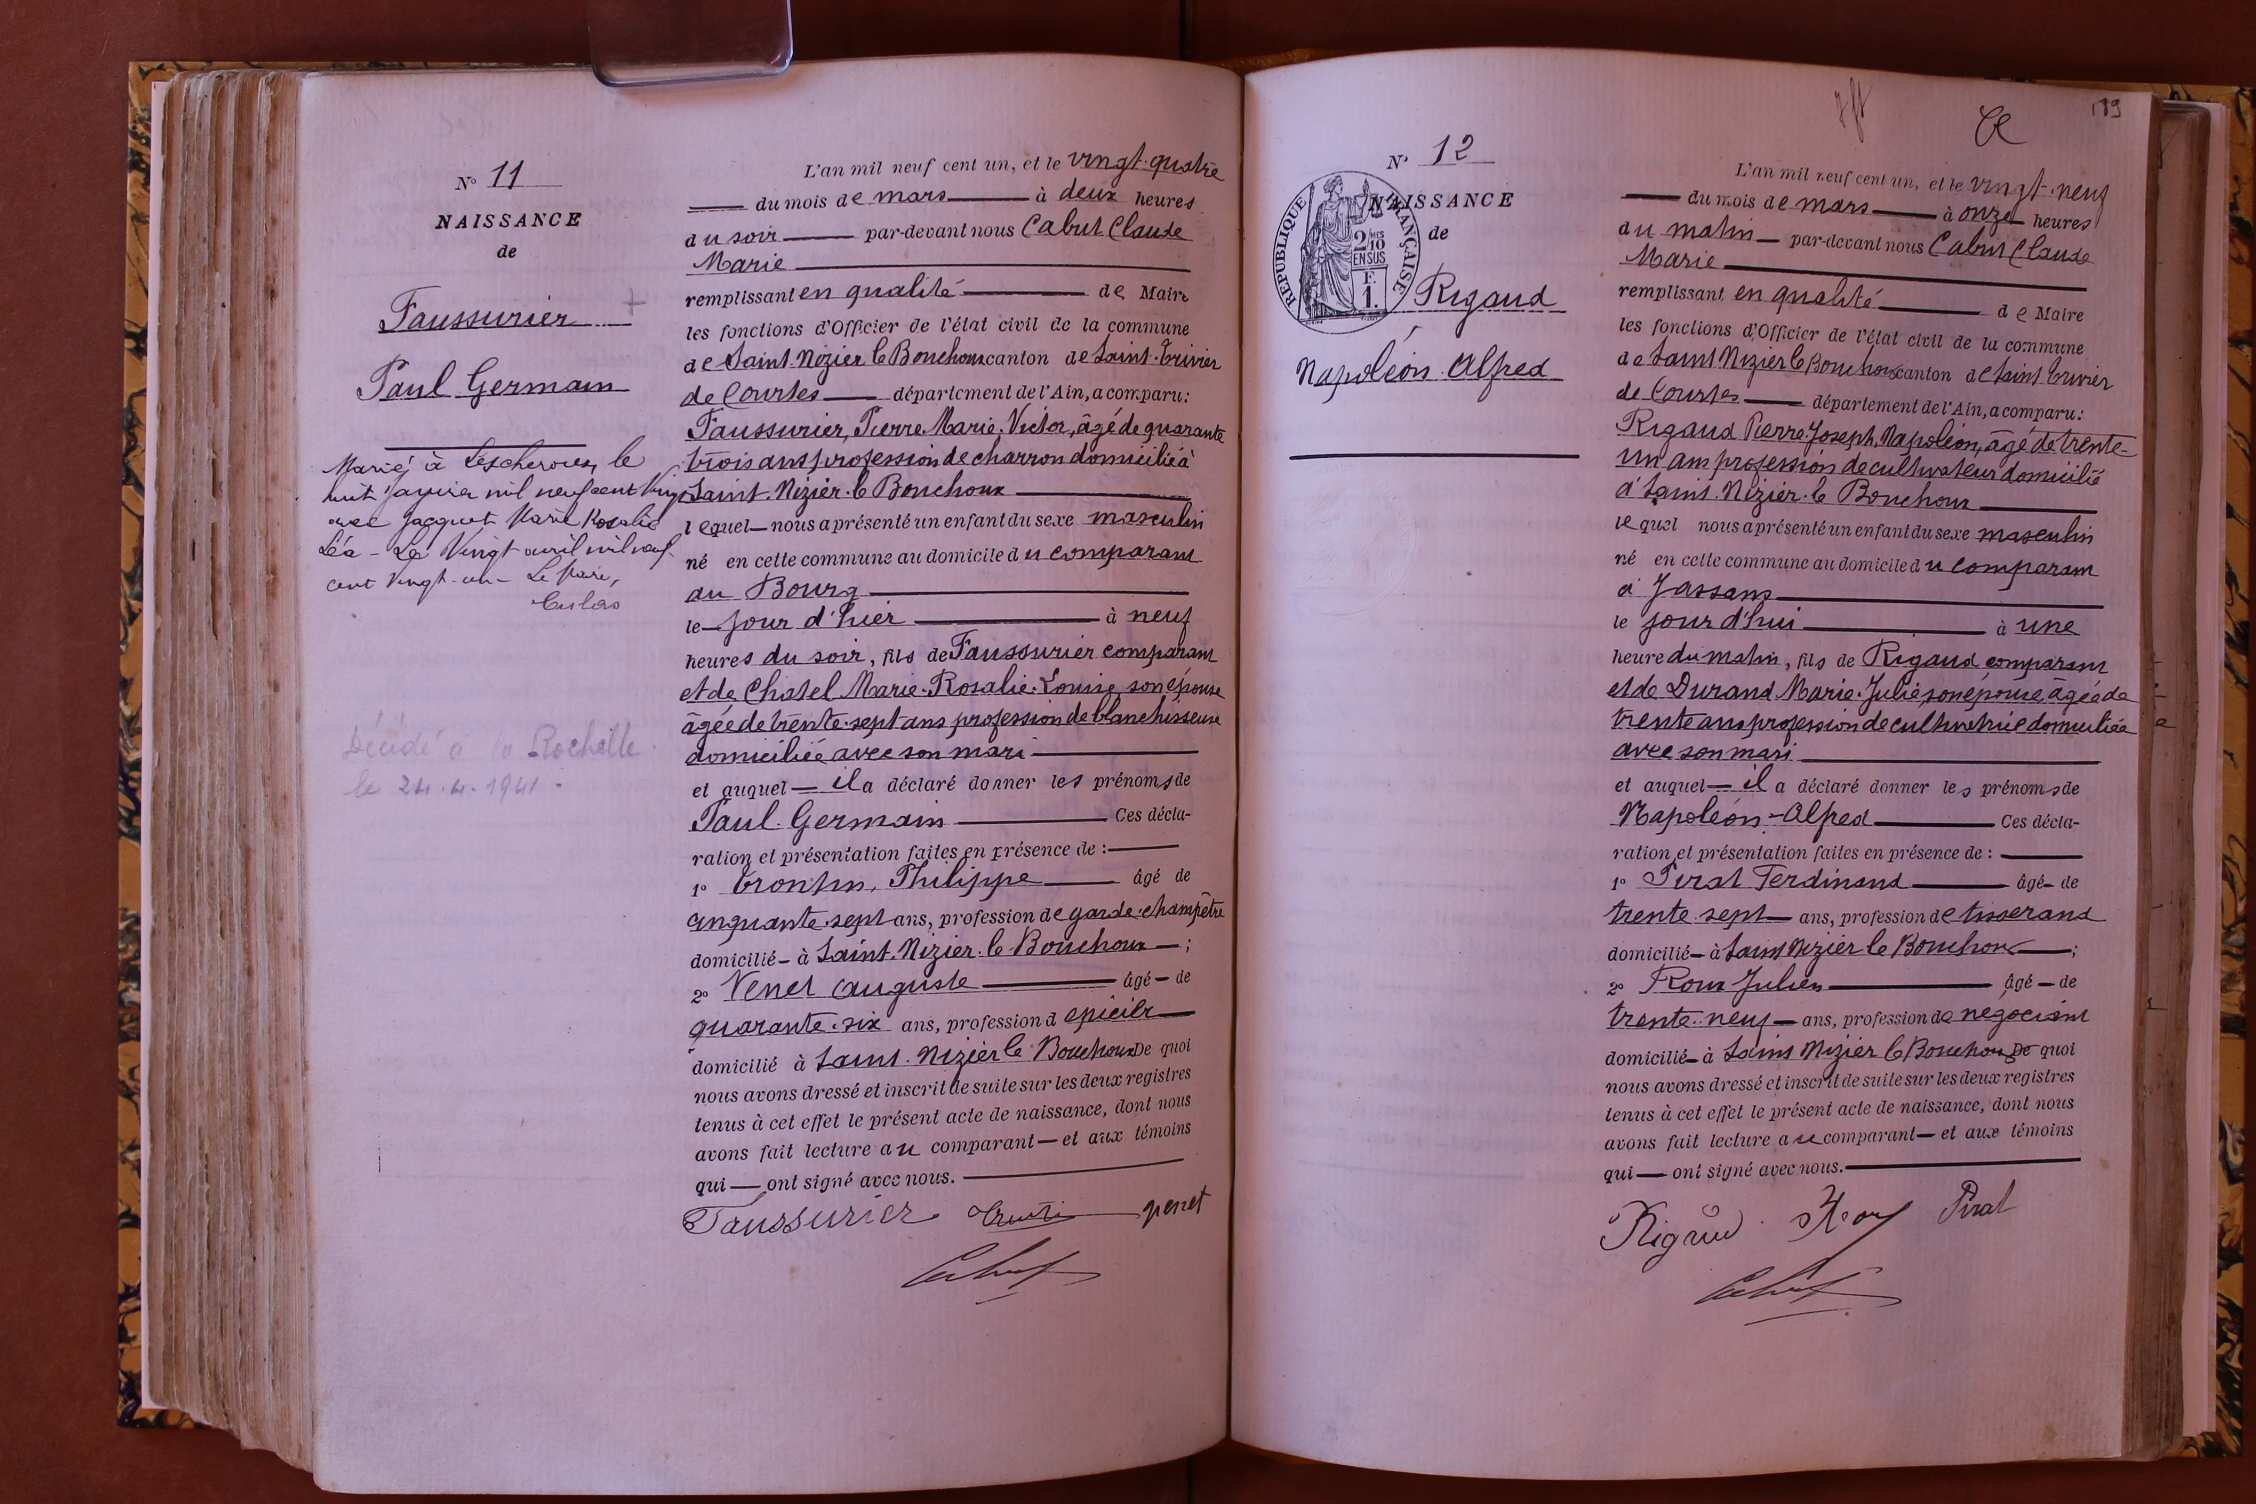 N° 11
NAISSANCE
de
Faussurier
Paul Germain
Marié à Lescheroux, le
huit janvier mil neuf cent vingt
avec Jacquet Marie Rosalie
Léa - Le Vingt avril mil neuf
cent vingt-un - Le Maire,
Décédé à la Rochelle
le 24.4.1941.
L'an mil neuf cent un, et le vingt-quatre
du mois de mars à deux heures
du soir par-devant nous Cabut Claude
Marie
remplissant en qualité de Maire
les fonctions d'Officier de l'état civil de la commune
de Saint-Nizier le Bouchoux canton de Saint-Trivier
de Courtes département de l'Ain, a comparu:
Faussurier, Pierre-Marie-Victor, âgé de quarante
trois ans profession de charron domicilié à
Saint-Nizier-le Bouchoux
lequel nous a présenté un enfant du sexe masculin
né en cette commune au domicile du comparant
au Bourg
le jour d'hier à neuf
heures du soir, fils de Faussurier comparant
et de Chatel Marie-Rosalie-Louise son épouse
âgée de trente-sept ans profession de blanchisseuse
domiciliée avec son mari
et auquel il a déclaré donner les prénoms de
Paul-Germain Ces décla-
ration et présentation faites en présence de :
1° Trontin, Philippe âgé de
cinquante-sept ans, profession de garde-champêtre
domicilié à Saint-Nizier-le Bouchoux ;
2° Venet Auguste âgé de
quarante-six ans, profession d épicier
domicilié à Saint-Nizier le Bouchoux De quoi
nous avons dressé et inscrit de suite sur les deux registres
tenus à cet effet le présent acte de naissance, dont nous
avons fait lecture au comparant et aux témoins
qui ont signé avec nous.
Faussurier venet
Cabut
189
N° 12
NAISSANCE
de
RÉPUBLIQUE FRANÇAISE
2/10 MES
EN SUS
F.
1.
Rigaud
Napoléon-Alfred
L'an mil neuf cent un, et le vingt-neuf
du mois de mars à onze heures
du matin par-devant nous Cabut Claude
Marie
remplissant en qualité de Maire
les fonctions d'Officier de l'état civil de la commune
de Saint Nizier le Bouchoux canton de Saint Trivier
de Courtes département de l'Ain, a comparu:
Rigaud Pierre-Joseph-Napoléon, âgé de trente-
un ans profession de cultivateur domicilié
à Saint-Nizier-le Bouchoux
lequel nous a présenté un enfant du sexe masculin
né en cette commune au domicile du comparant
à Jassans
le jour d'hui à une
heure du matin, fils de Rigaud comparant
et de Durand Marie-Julie, son épouse âgée de
trente ans profession de cultivatrice domiciliée
avec son mari
et auquel il a déclaré donner les prénoms de
Napoléon-Alfred Ces décla-
ration et présentation faites en présence de :
1° Pirat Ferdinand âgé de
trente-sept ans, profession de tisserand
domicilié à Saint Nizier le Bouchoux ;
2° Roux Julien âgé de
trente-neuf ans, profession de négociant
domicilié à Saint Nizier le Bouchoux De quoi
nous avons dressé et inscrit de suite sur les deux registres
tenus à cet effet le présent acte de naissance, dont nous
avons fait lecture au comparant et aux témoins
qui ont signé avec nous.
Rigaud Roux Pirat
Cabut